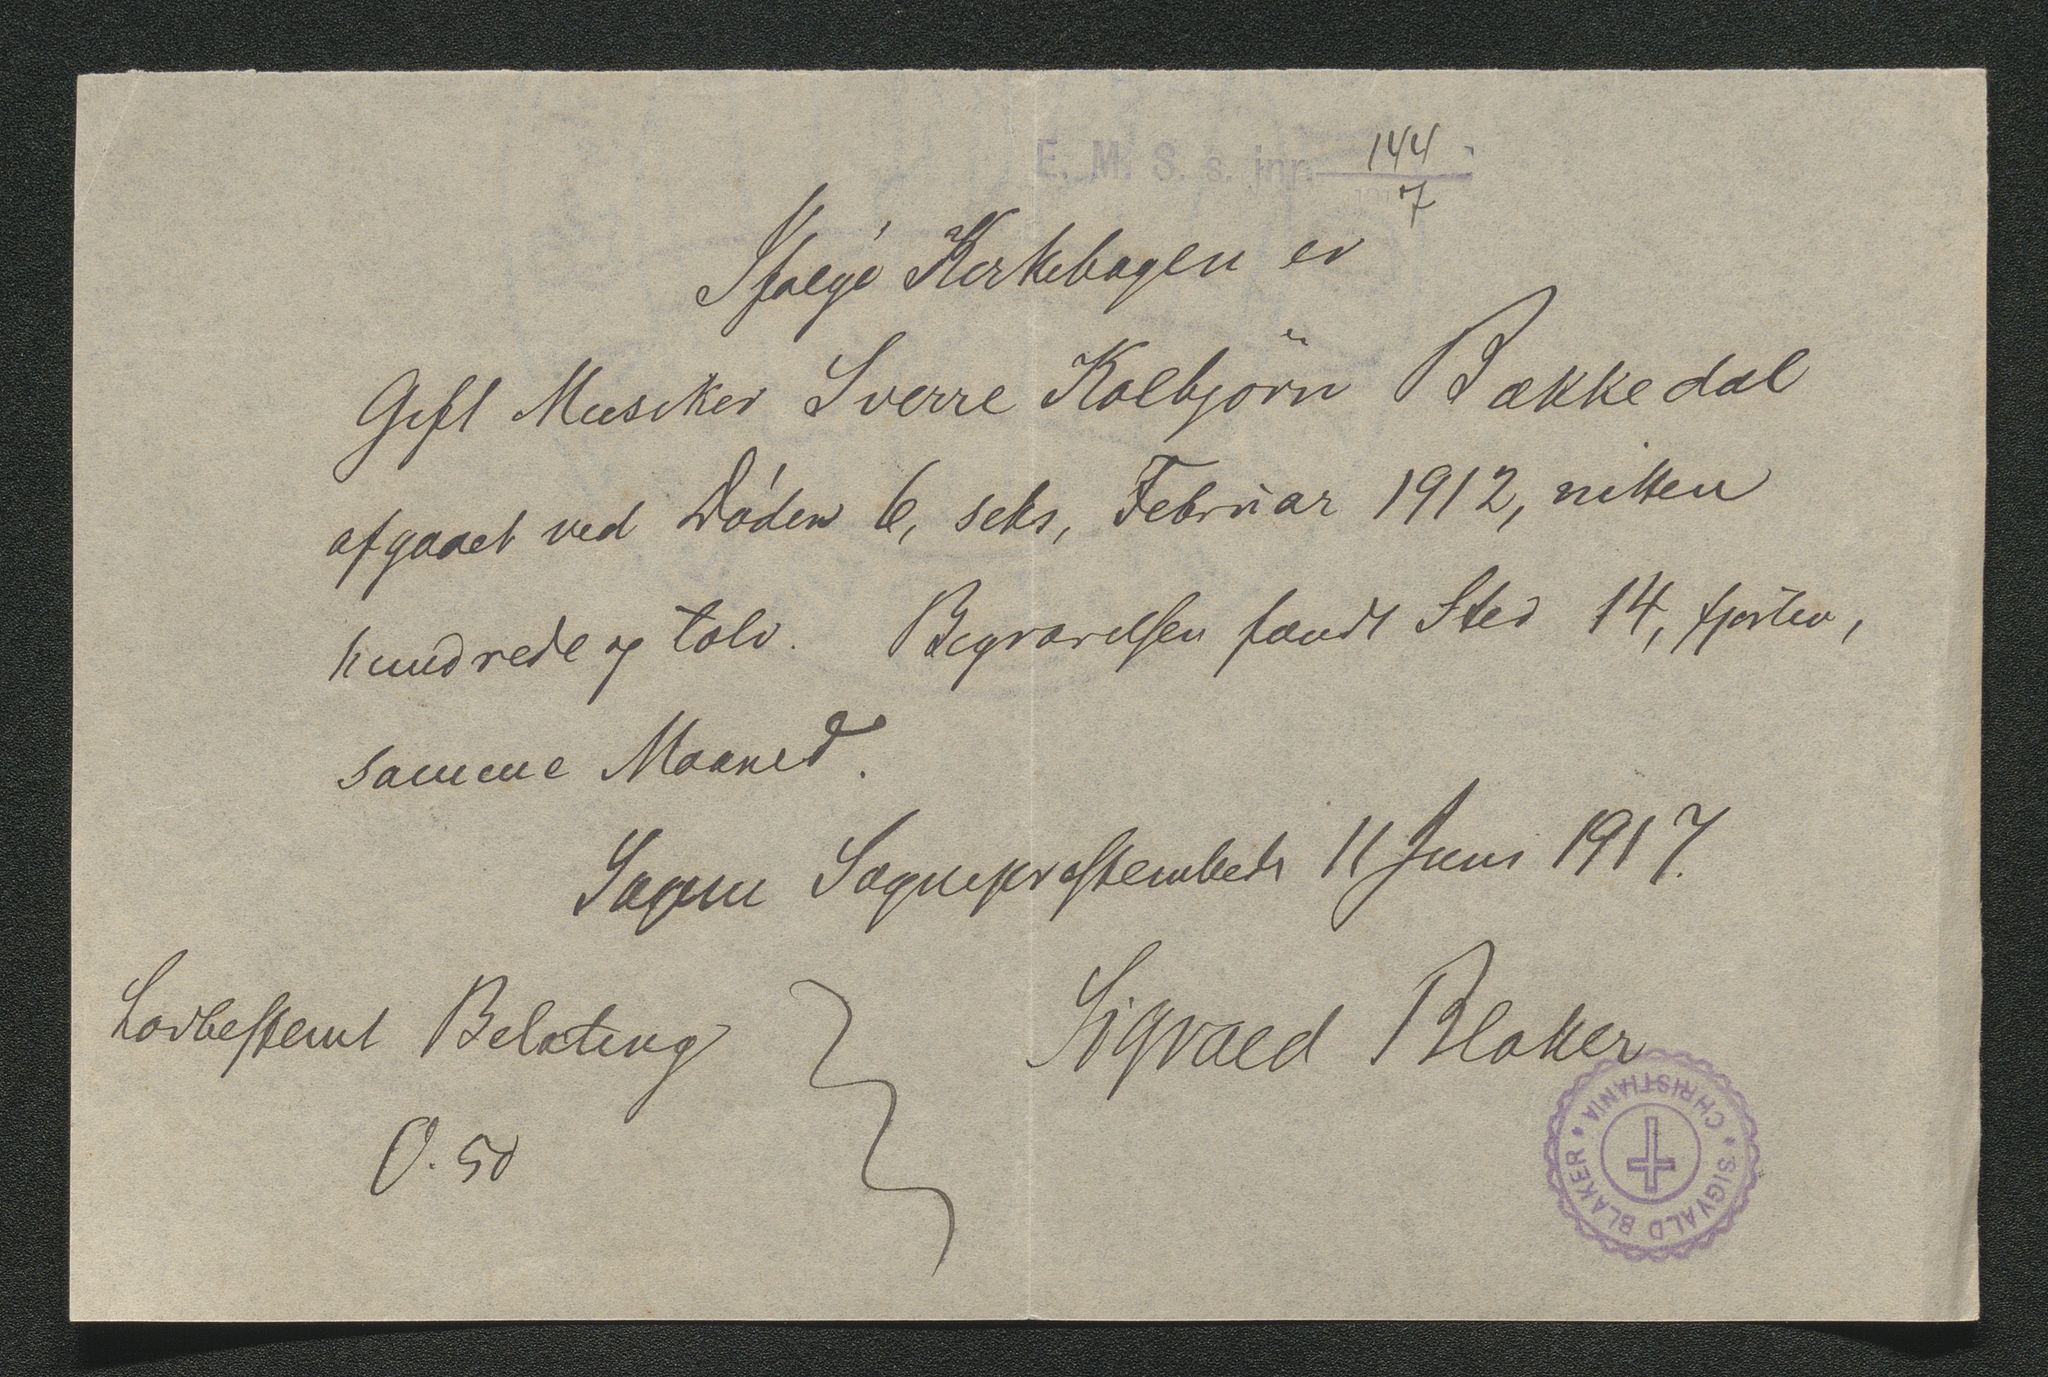 E. M. S. s. jnr. 144
7
Ifølge Kirkebogen er
Gift Musiker Sverre Kolbjörn Bækkedal
afgaaet ved Døden 6, seks, Februar 1912, nitten
hundrede og tolv. Begravelsen fandt Sted 14, fjorten,
samme Maaned.
Sagene Sogneprestembede 11 Juni 1917.
Lovbestemt Betaling
0.50
Sigvald Blaker
SIGVALD BLAKER * CHRISTIANIA *